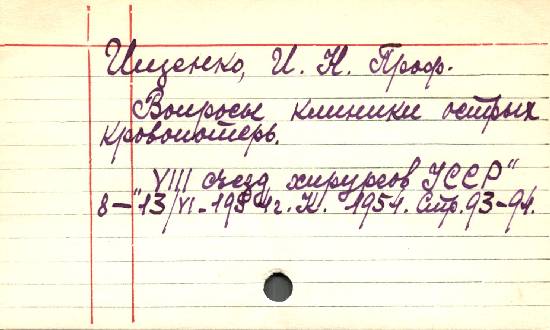 Ищенко, И. Н. Проф.
Вопросы клиники острых
кровопотерь.
VIII съезд хирургов УССР"
8—"13/VI-1954г. К. 1954. Стр. 93-94.